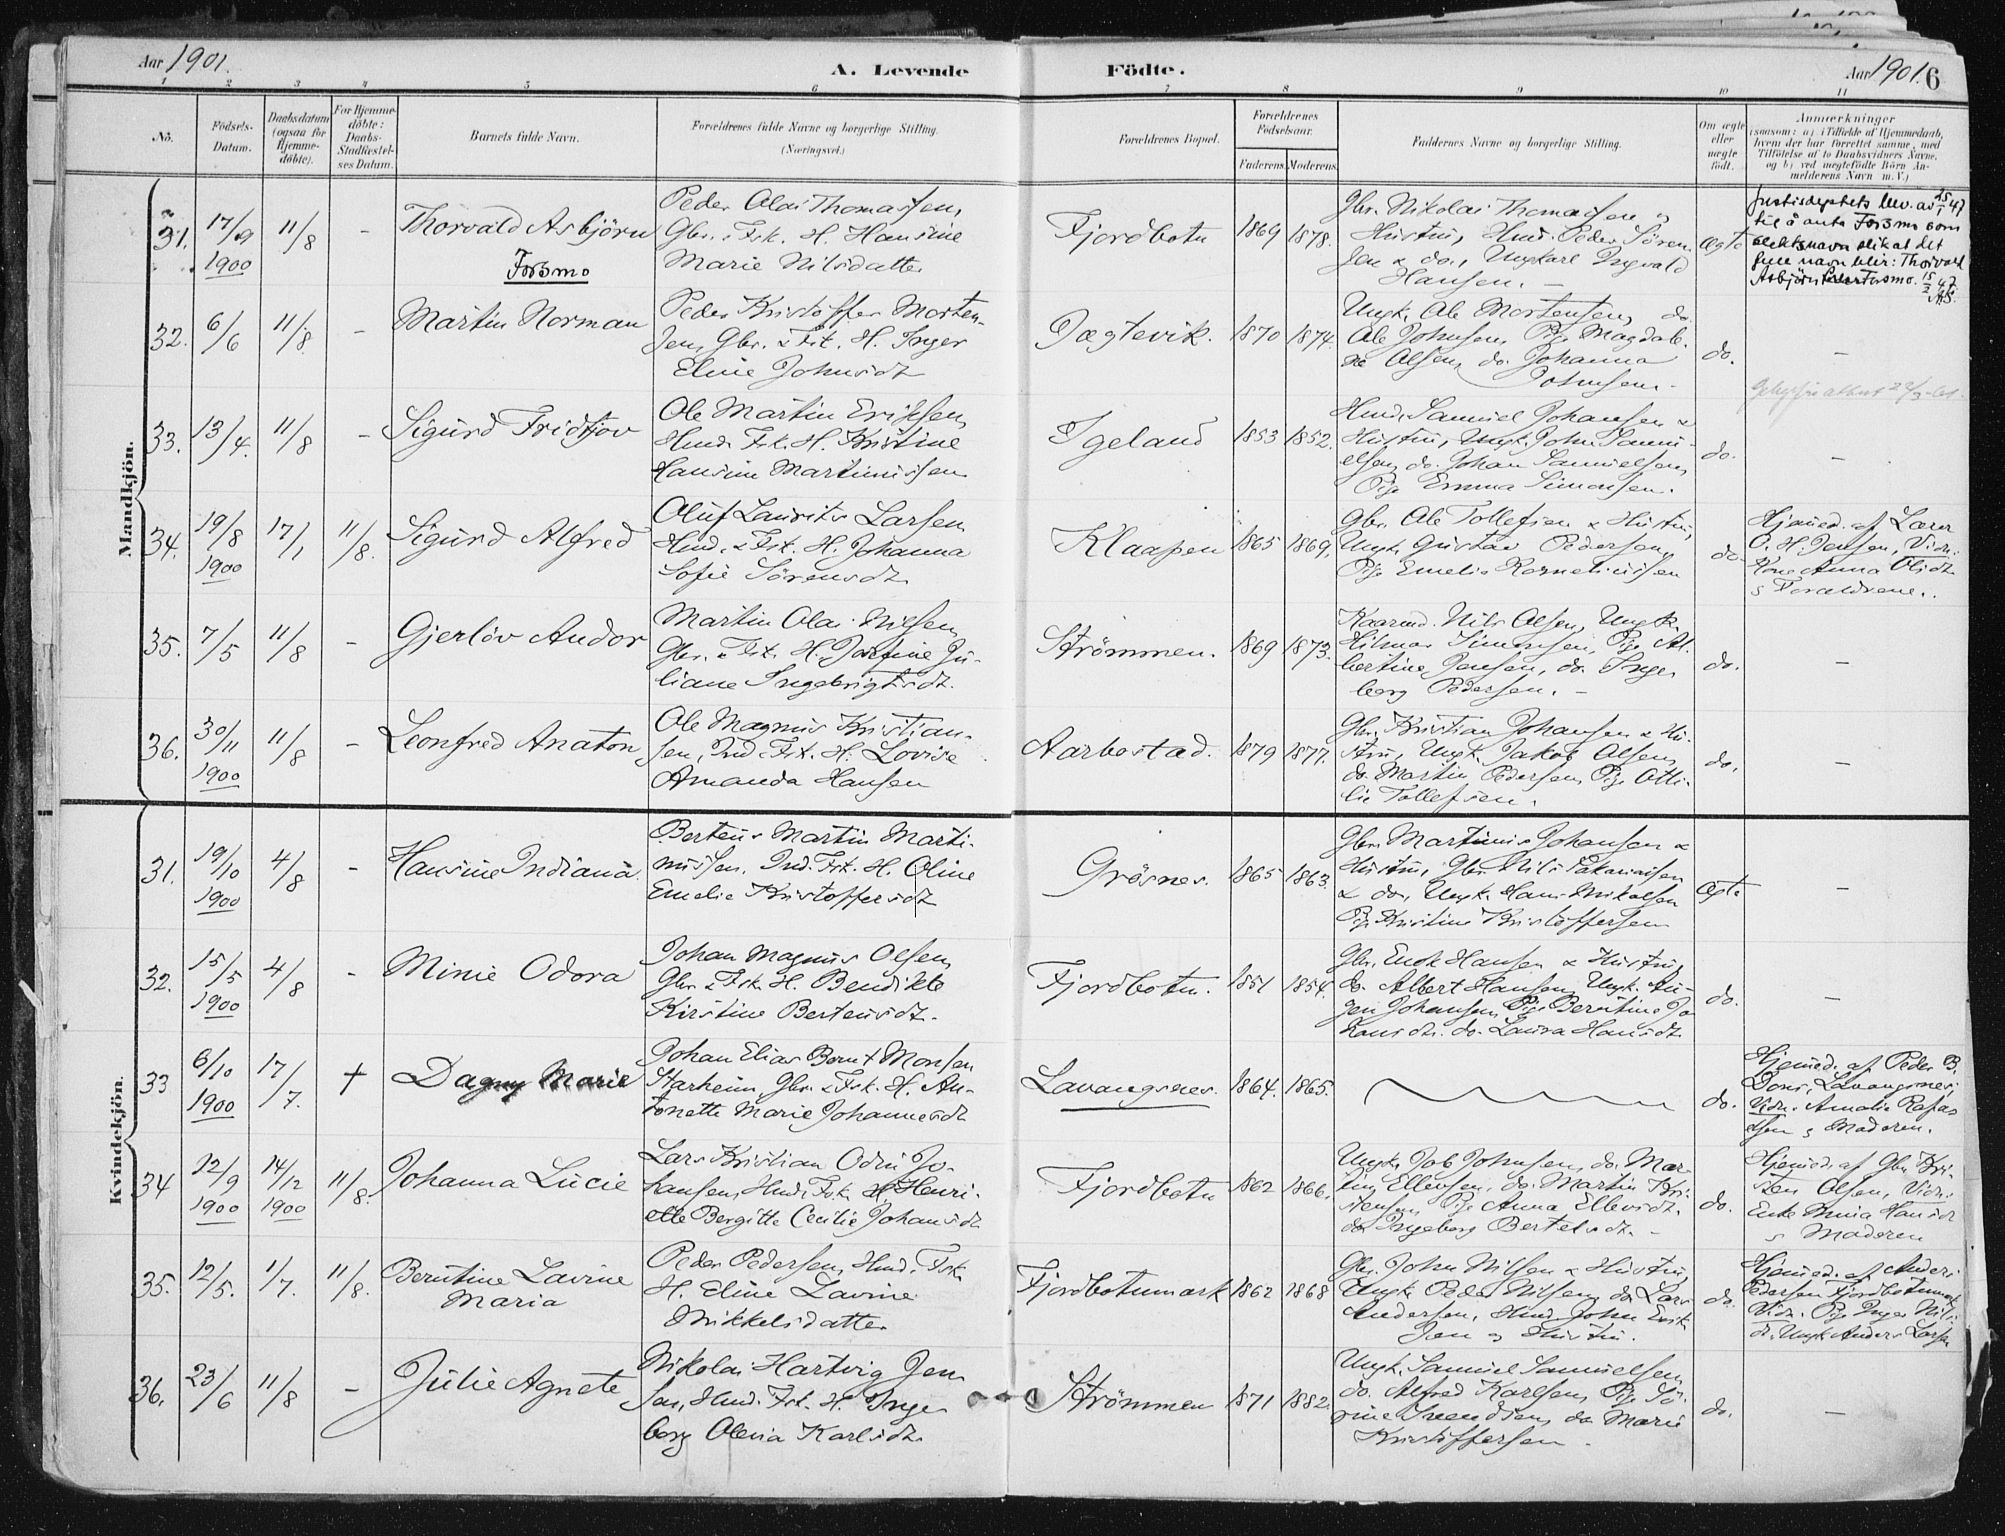 Aar 1901.
A. Levende
Födte.
Aar 1901. 6
1 2 3 4 5 6 7 8 9 10 11
No.
Födsels-
Datum.
Daabsdatum
(ogsaa for
Hjemme-
döbte).
For Hjemme-
döbte:
Daabs-
Stadfæstel-
ses Datum.
Barnets fulde Navn.
Forældrenes fulde Navne og borgerlige Stilling.
(Næringsvei.)
Forældrenes Bopæl.
Forældrenes
Födselsaar.
Faderens. Moderens.
Faddernes Navne og borgerlige Stilling.
Om ægte
eller
uægte
født.
Anmærkninger
(saasom: a) i Tilfælde af Hjemmedaab,
hvem der har forrettet samme, med
Tilföielse af to Daabsvidners Navne,
og b) ved uægtefödte Börn An-
melderens Navn m. V.)
Mandkjön.
31.
17/9
1900
11/8
-
Thorvald Asbjörn
Forsmo
Peder Olai Thomassen,
Gbr. & Fsk. H. Hansine
Marie Nilsdatter
Fjordbotn
1869
1878.
Gbr. Nikolai Thomassen &
Hustru, Hmd. Peder Sören-
sen & do., Ungkarl Ingvald
Hansen. -
Ægte
Justisdeptets bev. av 25/1 47
til å anta Forsmo som
slektsnavn slik at det
fulle navn blir: Thorvald
Asbjörn Forsmo. 15/2 47
32.
6/6
11/8
-
Martin Norman
Peder Kristoffer Morten-
sen, Gbr. & Fsk. H. Inger
Eline Johnsdt
Jægtevik.
1870
1874.
Ungk. Ole Mortensen, do.
Ole Johnsen, Pige Magdale-
ne Olsen, do. Johanna
Johnsen.
do.
-
33.
13/4.
11/8
-
Sigurd Fridtjov
Ole Martin Eriksen,
Hmd. Fsk. H. Kristine
Hansine Martinussen
Igeland
1853
1852.
Hmd. Samuel Johansen &
Hustru, Ungk. John Samu-
elsen, do. Johan Samuelsen,
Pige Emma Simonsen.
do.
-
34.
19/8
1900
17/1
11/8.
Sigurd Alfred
Oluf Laurits Larsen,
Hmd. & Fsk. H. Johanna
Sofie Sörensdt
Klaapen
1865
1869.
Gbr. Ole Tollefsen & Hustru,
Ungk. Gustav Pedersen,
Pige Emelie Korneliussen
do.
Hjemed. af Lærer
O. H. Jensen, Vidn.
Kone Anna Olsdt
& Forældrene.
35.
7/5
11/8
-
Gjerlöv Andor
Martin Olai Nilsen
Gbr. & Fsk. H. Josefine Ju-
liane Ingebrigtsdt.
Strömmen.
1869
1873.
Kaarmd. Nils Olsen, Ungk.
Hilmar Simonsen, Pige Al-
bertine Jensen, do. Inge-
borg Pedersen. -
do.
-
36.
30/11
1900
11/8
-
Leonfred Anaton
Ole Magnus Kristian-
sen, Ind. Fsk. H. Lovise
Amanda Hansen
Aarbostad.
1879
1877.
Gbr. Kristian Johansen & Hu-
stru, Ungk. Jakob Olsen,
do. Martin Pedersen, Pige Otti-
lie Tollefsen.
do.
-
Kvindekjön.
31.
19/10
1900
4/8
-
Hansine Indiana.
Berteus Martin Marti-
nussen, Ind. Fsk. H. Oline
Emelie Kristoffersdt
Grösnes.
1865
1863.
Gbr. Martinus Johansen &
Hustru, Gbr. Nils Sakariasen
& do., Ungk. Hans Mikalsen
Pige Kristine Kristoffersen
Ægte
-
32.
15/5
1900
4/8
-
Minie Odora
Johan Magnus Olsen,
Gbr. & Fsk. H. Bendikte
Kirstine Bertensdt.
Fjordbotn.
1851
1854.
Gbr. Enok Hansen & Hustru,
do. Albert Hansen, Ungk. Au-
gen Johansen, Pige Berntine Jo-
hansdt. do. Laura Hansdt.
do.
-
33
6/10
1900
17/7.
+
Dagny Marie
Johan Elias Bernt Monsen
Starheim, Gbr. & Fsk. H. An-
tonette Marie Johannesdt
Lavangsnes.
1864.
1865.
do.
Hjemed. af Peder B.
Dons, Lavangsnes,
Vidn. Amalie Rafa-
elsen & Moderen.
34
12/9
1900
14/12
1900
11/8.
Johanna Lucie
Lars Kristian Odin Jo-
hansen, Hmd. Fsk. H. Henri-
ette Bergitte Cecilie Johansdt
Fjordbotn
1862
1866.
Ungk. Job Johnsen, do. Mar-
tin Ellevsen, do. Martin Kri-
stensen, Pige Anna Ellevsdt.
do. Ingeborg Bertelsdt. -
do.
Hjemed. af Gbr. Kri-
sten Olsen, Vidn.
Enke Anna Hansdt
& Moderen
35.
12/5.
1/7.
11/8.
Berntine Lavine
Maria
Peder Pedersen, Hmd. Fsk.
H. Eline Lavine
Mikkelsdatter
Fjordbotnmark
1862
1868
Gbr. John Nilsen & Hustru,
Ungk. Peder Nilsen, do. Lars
Andersen, Hmd. John Erik-
sen & Hustru.
do.
Hjemed. af Anders
Pedersen Fjordbotnmark
Vidn. Pige Inger Nils-
dt, Ungk. Anders Larsen
36.
23/6
11/8
-
Julie Agnete
Nikolai Hartvig Jen-
sen, Hmd. Fsk. H. Inge-
borg Olevia Karlsdt.
Strömmen
1871
1882.
Ungk. Samuel Samuelsen,
do. Alfred Karlsen, Pige Sö-
rine Svendsen, do. Marie
Kristoffersen.
do.
-